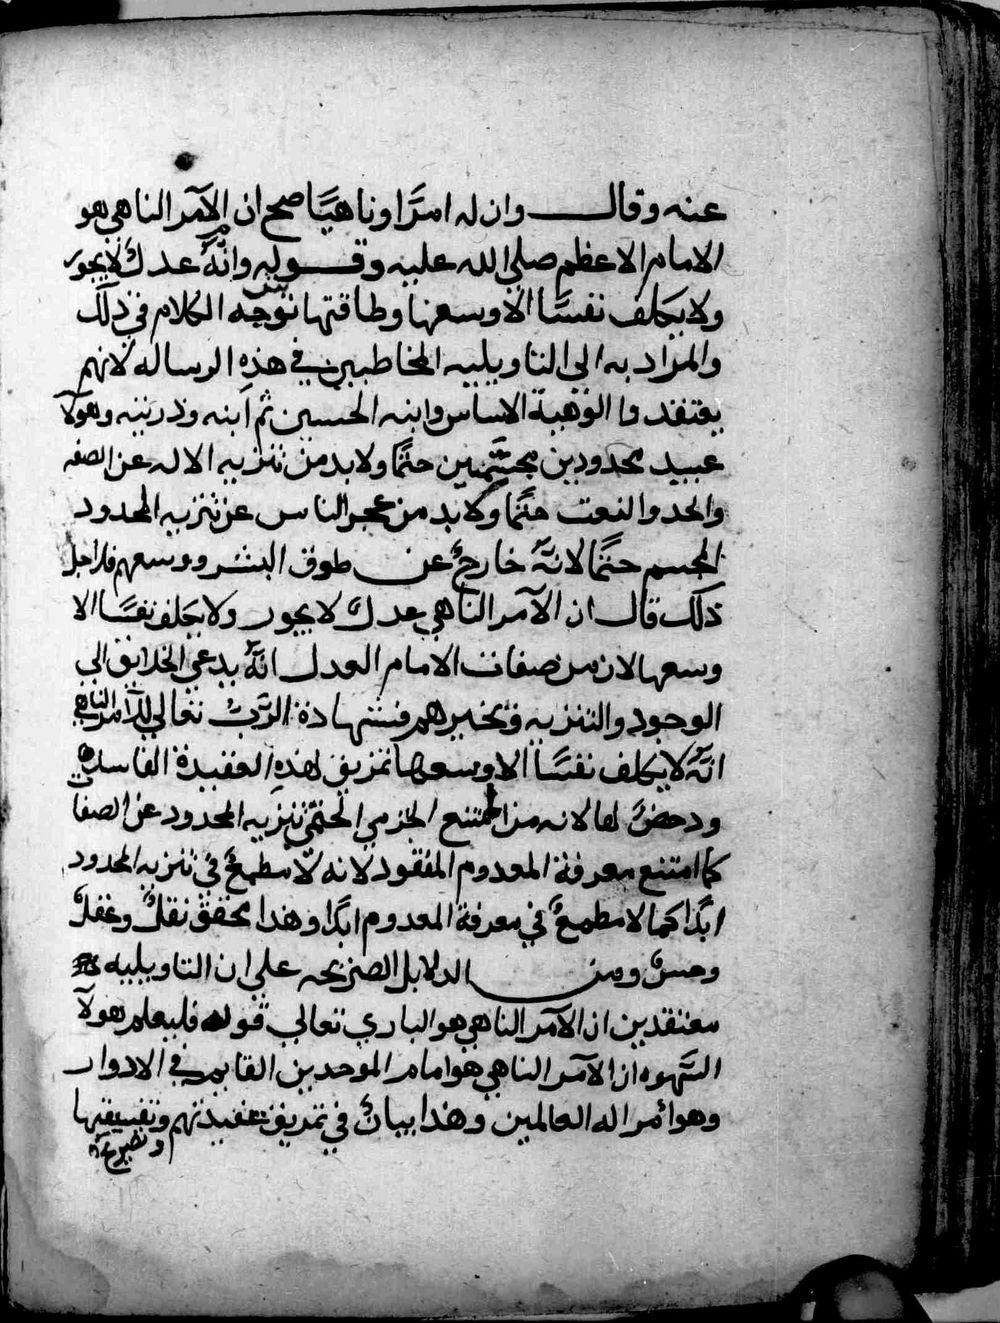 عنه وقال وان له امرًا وناهيًا صح ان الآمر الناهي هو
الامام الاعظم صلي الله عليه وقوله وانّهُ عدلٌ لا يجور
ولا يكلف نفسًا الا وسعها وطاقتها توجه الكلام في ذلك
والمراد به الي التاويليه المخاطبين في هذه الرساله لانهم
يعتقدوا الوهية الاساس وابنه الحسين ثم ابنه وذريته وهولآ
عبيد محدودين مجسّمين حتمًا ولا بد من تنزيه الاله عن الصفه
والحد والنعت حتمًا ولا بد من عجز الناس عن تنزيه المحدود
المجسم حتمًا لانهُ خارجٌ عن طوق البشر ووسعهم فلاجل
ذلك قال ان الآمر الناهي عدلٌ لا يجور ولا يكلف نفسًا الا
وسعها لان من صفات الامام العدل انهُ يدعي الخلايق الي
الوجود والتنزيه ويخيرهم فشهادة الرّب تعالي للآمر الناهي
انّهُ لا يكلف نفسًا الا وسعها تمزيق لهذهِ العقيدة الفاسدة
ودحضٌ لها لانه من الممتنع الجزمي الحتمي تنزيه المحدود عن الصفا
كما امتنع معرفة المعدوم المفقود لانه لا مطمعٌ في تنزيه المحدود
ابدًا كما لا مطمعٌ في معرفة المعدوم ابدًا وهذا محقق نقلٌ وعقلٌ
وحسٌ ومن الدلايل الصريحه علي ان التاويليه
معتقدين ان الآمر الناهي هو الباري تعالي قوله فليعلم هولآ
السهوه ان الآمر الناهي هو امام الموحدين القايم في الادوار
وهو امر اله العالمين وهذا بيانٌ في تمزيق عقيدتهم وتفسيقها